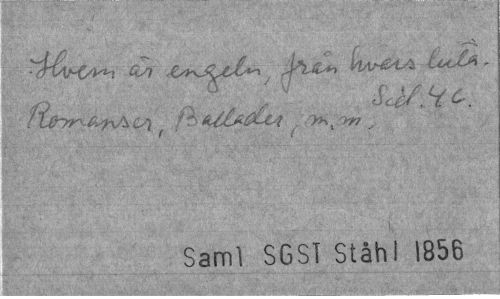 Hvem är engeln, från hvars luta.
Sid. 46.
Romanser, Ballader, m.m.
Saml SGST Ståhl 1856